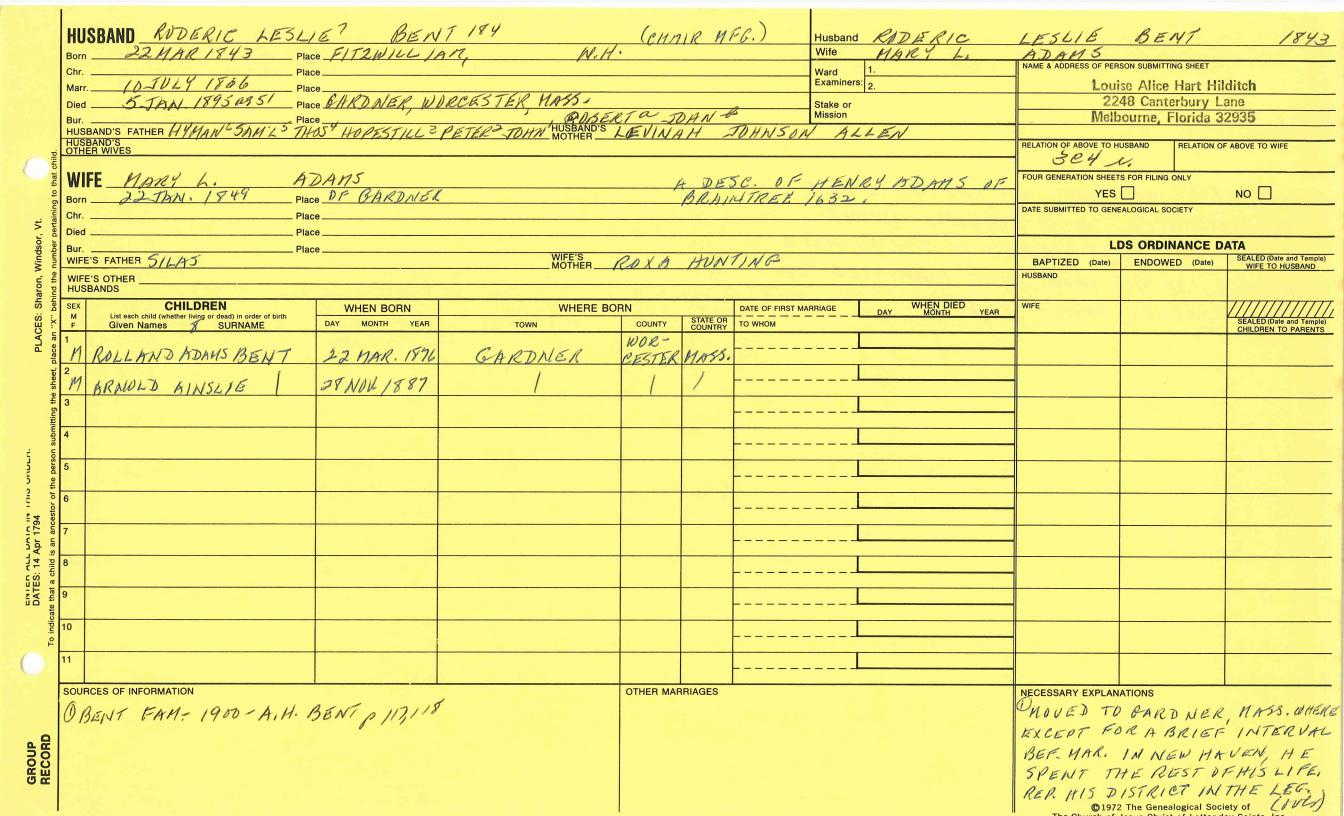 HUSBAND RODERIC LESLIE⁷ BENT 184 (CHAIR MFG.)
Born 22 MAR 1843 Place FITZWILLIAM, N.H.
Chr. Place
Marr. 10 JULY 1866 Place
Died 5 JAN 1893 Place GARDNER, WORCESTER, MASS.
Bur. Place ROBERT JOHN
HUSBAND'S FATHER HYMAN⁶ SAM'L⁵ THOS⁴ HOPESTILL³ PETER² JOHN¹ HUSBAND'S MOTHER LEVINAH JOHNSON ALLEN
HUSBAND'S OTHER WIVES
Husband RODERIC LESLIE BENT 1843
Wife MARY L. ADAMS
Ward Examiners: 1.
2.
Stake or Mission
NAME & ADDRESS OF PERSON SUBMITTING SHEET
Louise Alice Hart Hilditch
2248 Canterbury Lane
Melbourne, Florida 32935
RELATION OF ABOVE TO HUSBAND RELATION OF ABOVE TO WIFE
3C4
FOUR GENERATION SHEETS FOR FILING ONLY
YES NO
DATE SUBMITTED TO GENEALOGICAL SOCIETY
WIFE MARY L. ADAMS A DESC. OF HENRY ADAMS OF
Born 22 JAN. 1849 Place OF GARDNER BRAINTREE 1632.
Chr. Place
Died Place
Bur. Place
WIFE'S FATHER SILAS WIFE'S MOTHER ROXA HUNTING
WIFE'S OTHER HUSBANDS
LDS ORDINANCE DATA
BAPTIZED (Date) ENDOWED (Date) SEALED (Date and Temple) WIFE TO HUSBAND
HUSBAND
WIFE
SEALED (Date and Temple) CHILDREN TO PARENTS
SEX M F CHILDREN WHEN BORN WHERE BORN DATE OF FIRST MARRIAGE WHEN DIED
List each child (whether living or dead) in order of birth
Given Names 8 SURNAME DAY MONTH YEAR TOWN COUNTY STATE OR COUNTRY TO WHOM DAY MONTH YEAR
1 M ROLLAND ADAMS BENT 22 MAR. 1876 GARDNER WORCESTER MASS.
2 M ARNOLD AINSLIE | 28 NOV. 1887 | | /
3
4
5
6
7
8
9
10
11
SOURCES OF INFORMATION
① BENT FAM- 1900 - A.H. BENT, p 117, 118
OTHER MARRIAGES
NECESSARY EXPLANATIONS
① MOVED TO GARDNER, MASS. WHERE
EXCEPT FOR A BRIEF INTERVAL
BEF. MAR. IN NEW HAVEN, HE
SPENT THE REST OF HIS LIFE.
REP. HIS DISTRICT IN THE LEG.
©1972 The Genealogical Society of
The Church of Jesus Christ of Latter-day Saints, Inc.
PLACES: Sharon, Windsor, Vt.
ENTER ALL DATA IN THIS ORDER:
DATES: 14 Apr 1794
To indicate that a child is an ancestor of the person submitting the sheet, place an "X" behind the number pertaining to that child.
GROUP
RECORD